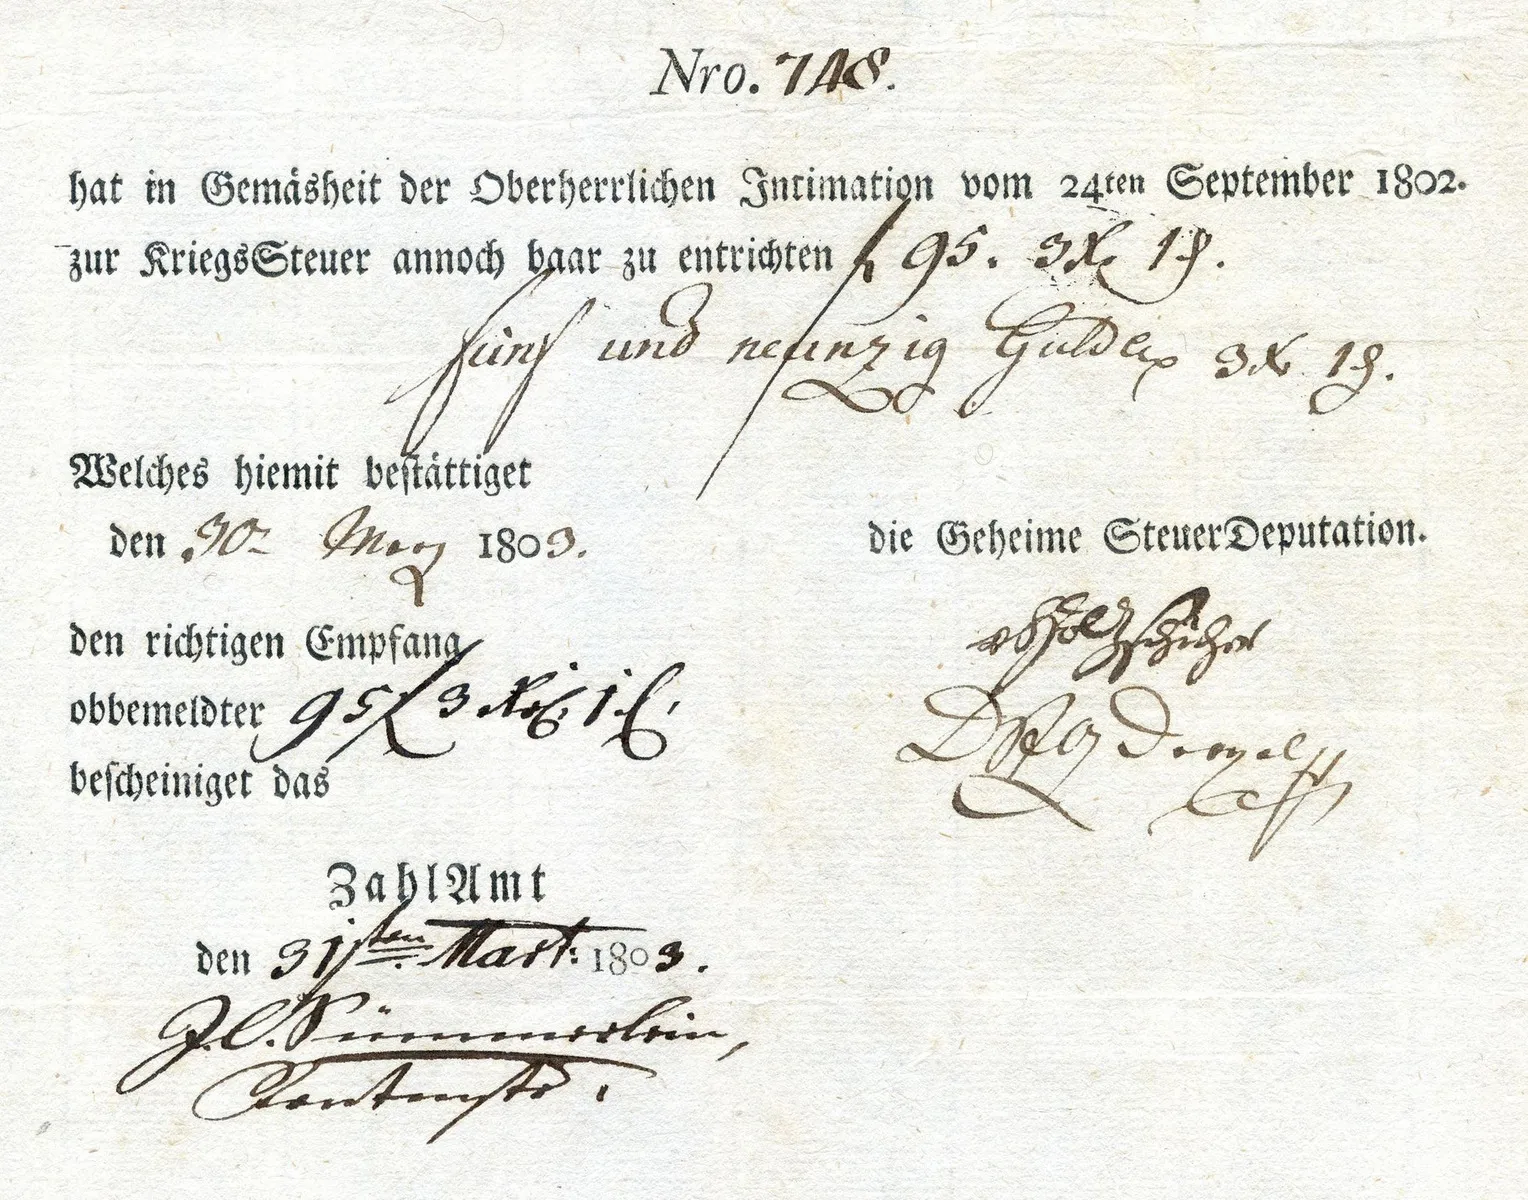 Nro. 748.
hat in Gemäsheit der Oberherrlichen Intimation vom 24ten September 1802.
zur KriegsSteuer annoch baar zu entrichten f 95. 3 X. 1 ₰.
fünf und neunzig Gulden 3 X. 1 ₰.
Welches hiemit bestättiget
den 30. Merz 1803.
die Geheime SteuerDeputation.
v Holzschuher
den richtigen Empfang
obbemeldter 95 f 3
bescheiniget das
ZahlAmt
den 31sten Mart: 1803.
J. C. Sümmerlein,